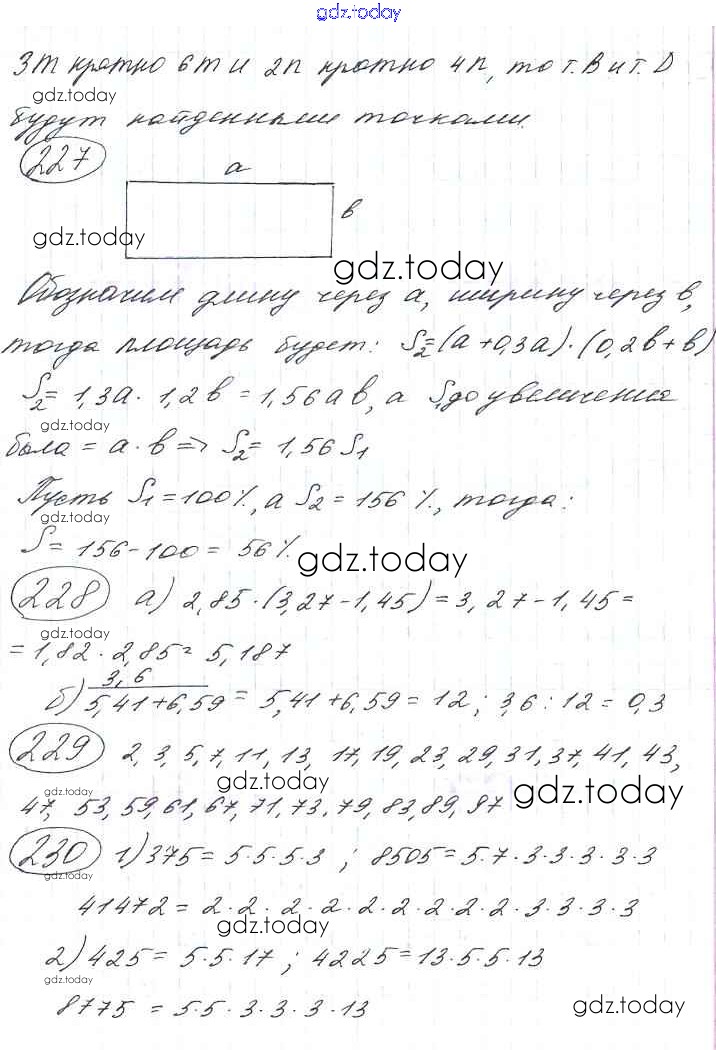 gdz.today
3m кратно 6m и 2n кратно 4n, то т. В и т. D
gdz.today
будут найденными точками.
227
a
в
gdz.today
gdz.today
Обозначим длину через a, ширину через в,
тогда площадь будет: S₂=(a+0,3a)·(0,2в+в)
S₂= 1,3a · 1,2в = 1,56aв, а S₁ до увеличения
gdz.today
была = a·в => S₂= 1,56 S₁
Пусть S₁ =100%, а S₂ = 156 %, тогда:
gdz.today
S= 156-100= 56%
gdz.today
228 а) 2,85·(3,27-1,45)=3,27-1,45=
gdz.today
=1,82·2,85= 5,187
б) 3,6/5,41+6,59 = 5,41+6,59=12; 3,6:12=0,3
229 2,3,5,7,11,13,17,19,23,29,31,37,41,43,
gdz.today
gdz.today
gdz.today
47, 53,59,61,67,71,73,79,83,89,97
230 1) 375= 5·5·5·3 ; 8505=5·7·3·3·3·3·3
gdz.today
41472= 2·2·2·2·2·2·2·2·2·3·3·3·3
gdz.today
2) 425= 5·5·17; 4225=13·5·5·13
gdz.today
8775 = 5·5·3·3·3·13
gdz.today